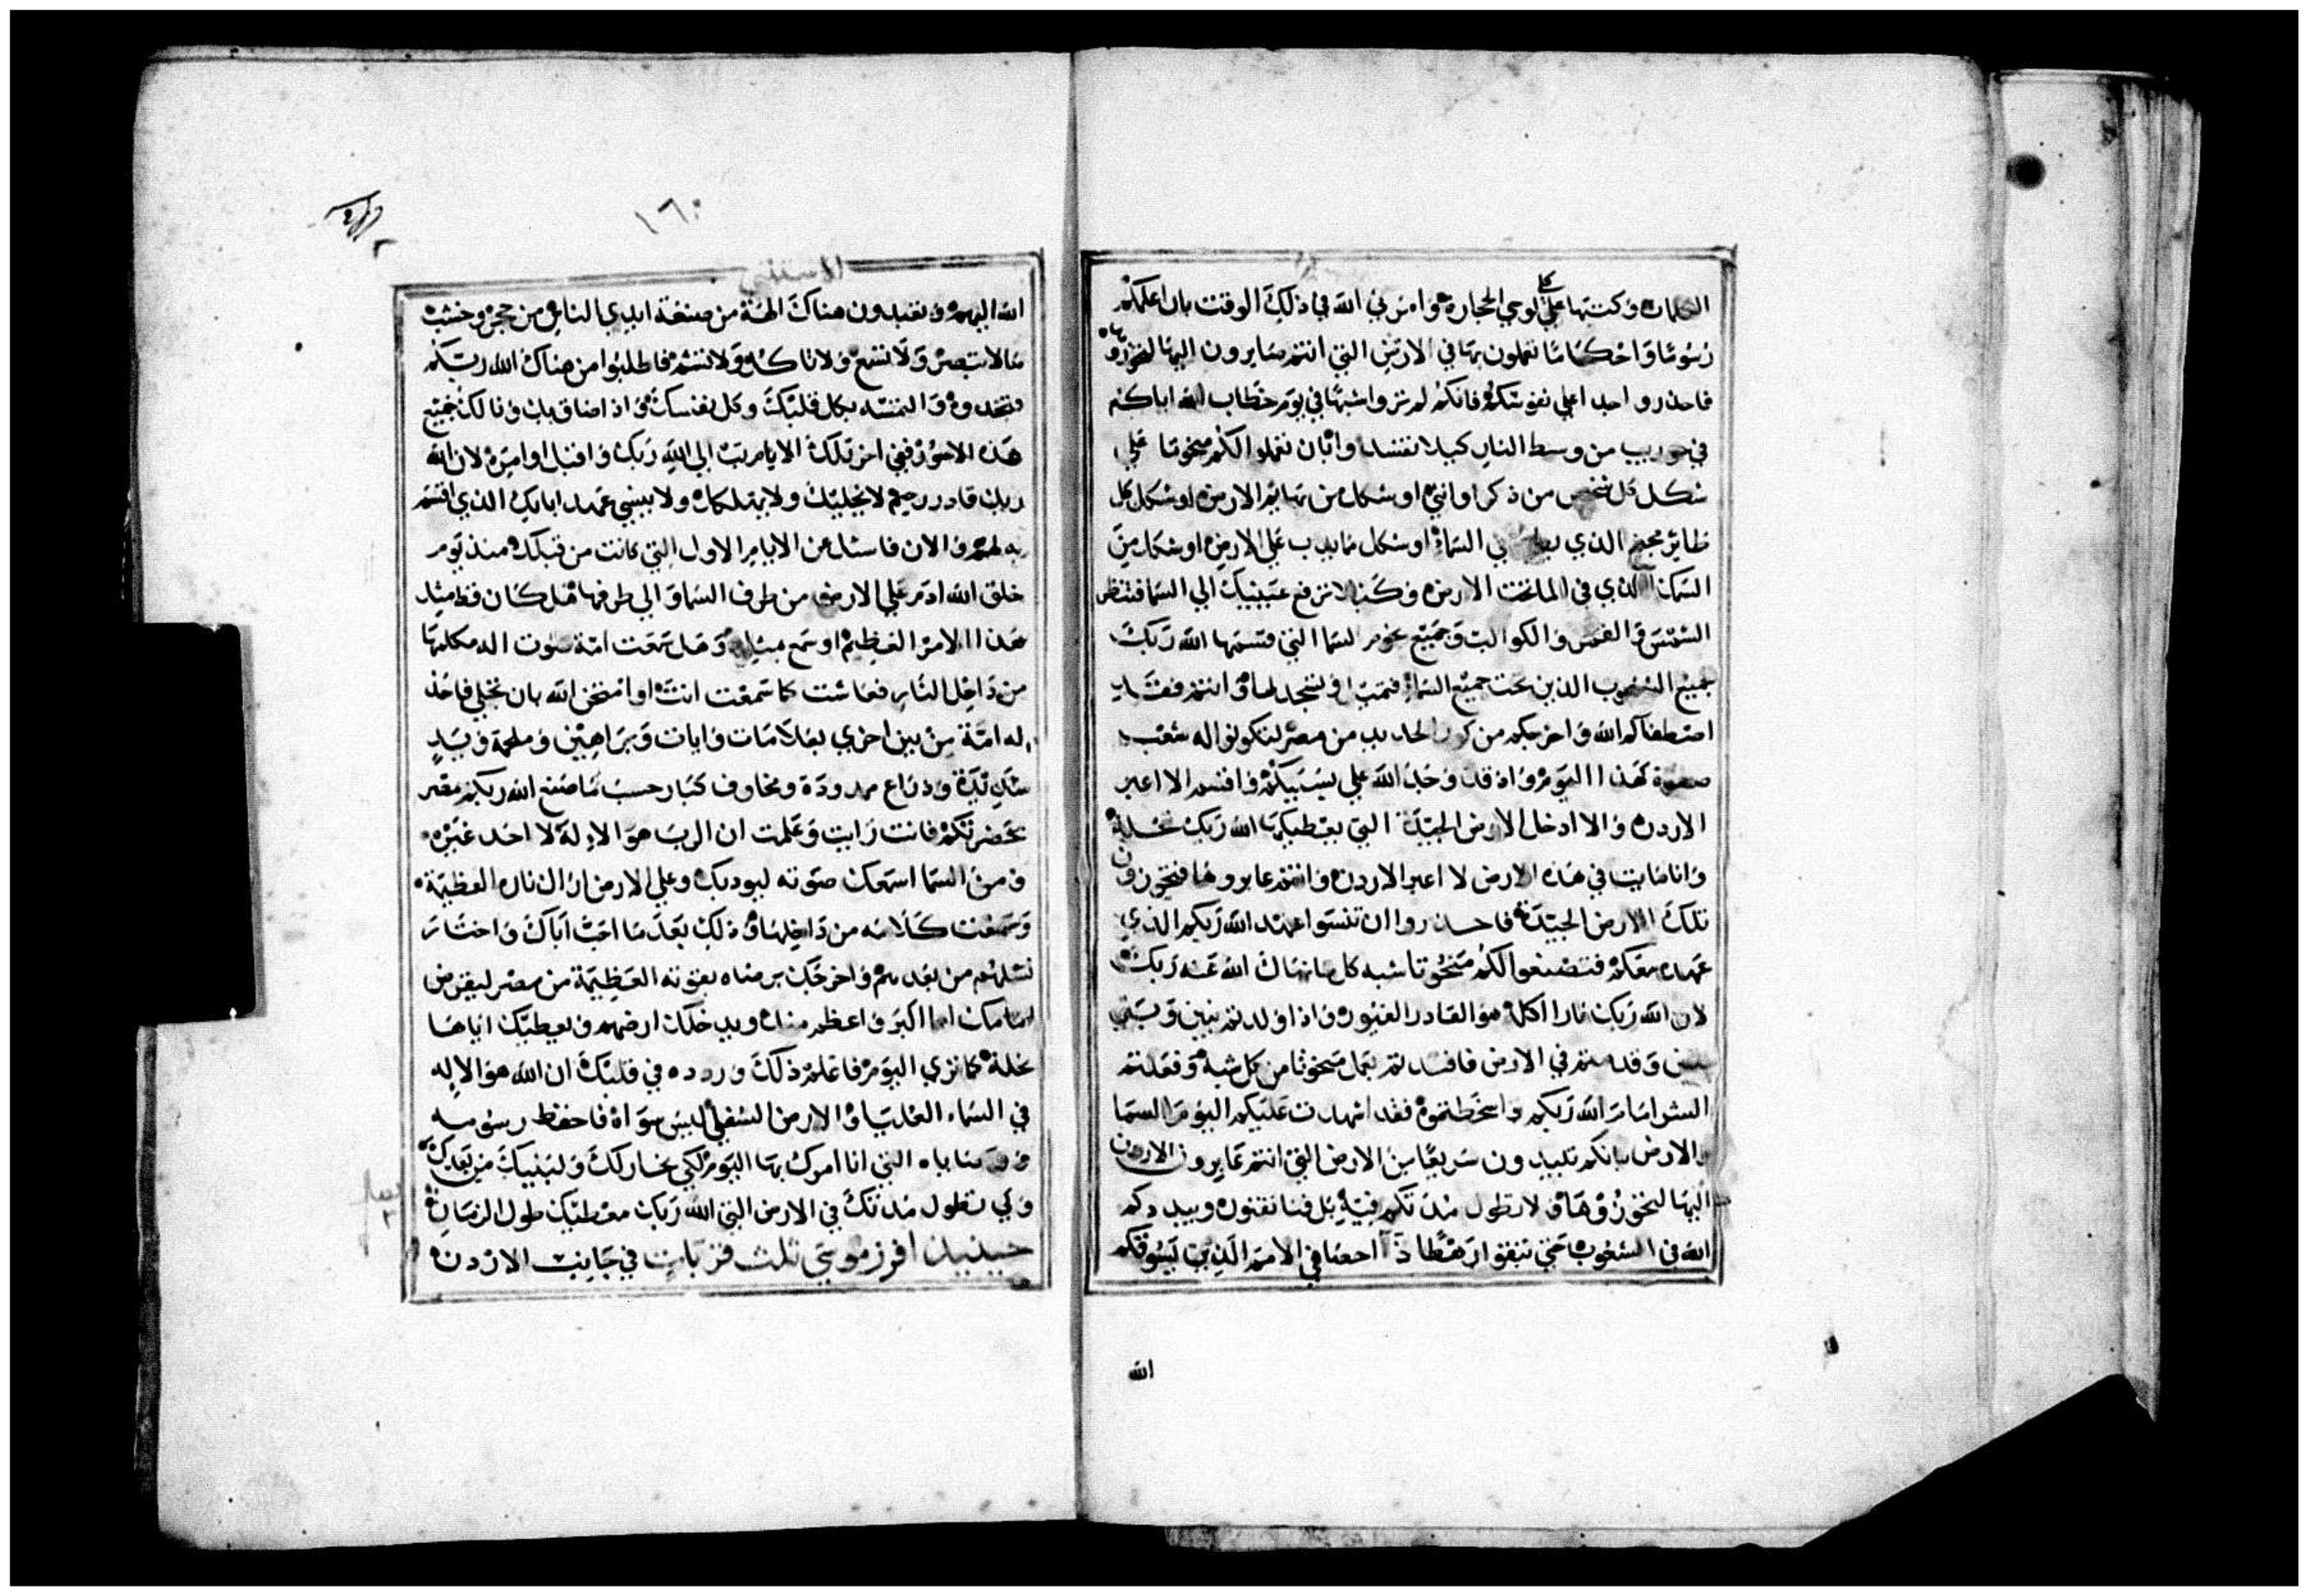 الكلمات وكتبتها علي لوحي الحجارة وامرني الله في ذلك الوقت بان اعلمكم
رسوما واحكاما تعملون بها في الارض التي انتم سايرون اليها لتحوزوها
فاحذروا جدا علي نفوسكم فانكم لم تروا شبها في يوم خطاب الله اياكم
في حوريب من وسط النار كيلا تفسدوا وبان تعملوا لكم منحوتا علي
شكل كل شخص من ذكر او انثي او شكل من بهايم الارض او شكل كل
طاير مجنح الذي يطير في السماء او شكل ما يدب علي الارض او شكل من
السمك الذي في الما تحت الارض وكيلا ترفع عينيك الي السما فتنظر
الشمس والقمر والكواكب وجميع نجوم السما التي قسمها الله ربك
لجميع الشعوب الذين تحت جميع السماء وتسجد لها وانتم فقد
اصطفاكم الله واخرجكم من كور الحديد من مصر لتكونوا له شعب
صفوة كهذا اليوم واذ قد وجد الله علي بسببكم واقسم الا اعبر
الاردن والا ادخل الارض الجيدة التي يعطيكها الله ربك نحلة
وانا مايت في هذه الارض لا اعبر الاردن وانتم عابروها فتحوزون
تلك الارض الجيدة فاحذروا ان تنسوا عهد الله ربكم الذي
عهده معكم فتصنعوا لكم منحوتا شبه كل ما نهاك الله عنه ربك
لان الله ربك نارا اكلة هو القادر الغيور واذا اولدتم بنين وبني
بنين وقدمتم في الارض فافسدتم بعمل منحوتا من كل شبه وفعلتم
الشر امام الله ربكم واسخطتموه فقد اشهدت عليكم اليوم السما
والارض بانكم تبيدون سريعا من الارض التي انتم عابرون الاردن
اليها لتحوزوها ولا تطول مدتكم فيها بل فنا تفنون ويبددكم
الله في الشعوب حتي تبقوا رهطا ذا احصا في الامم الذين يسوقكم
الله
١٦٠
الاستثني
الله اليهم وتعبدون هناك الهة من صنعة ايدي الناس من حجر وخشب
ما لا تبصر ولا تسمع ولا تاكل ولا تشم فاطلبوا من هناك الله ربكم
فتجدوه والتمسه بكل قلبك وكل نفسك واذا ضاق بك ونالك جميع
هذه الامور ففي اخر تلك الايام تب الي الله ربك واقبل اوامره لان الله
ربك قادر رحيم لا يخليك ولا يهلكك ولا ينسي عهد ابايك الذي اقسم
به لهم والان فاسئل عن الايام الاول التي كانت من قبلك منذ يوم
خلق الله ادم علي الارض من طرف السما والي طرفها هل كان قط مثل
هذا الامر العظيم او سمع مثله وهل سمعت امة صوت الله مكلمها
من داخل النار فعاشت كما سمعت انت او امتحن الله بان تجلي فاخذ
له امة من بين اخري بعلامات وايات وبراهين وملحمة وبيد
شديدة وذراع ممدودة ومخاوف كبار حسب ما صنع الله ربكم بمصر
بحضرتكم فانت رايت وعلمت ان الرب هو الاله لا احد غيره
ومن السما اسمعك صوته ليودبك وعلي الارض اراك ناره العظيمة
وسمعت كلامه من داخلها وذلك بعد ما احب اباك واختار
نسلهم من بعدهم واخرجك برضاه بقوته العظيمة من مصر ليقرض
امامك امما اكبر واعظم منك ويدخلك ارضهم ويعطيك اياها
نحلة كما تري اليوم فاعلم ذلك وردده في قلبك ان الله هو الاله
في السماء العليا والارض السفلي ليس سواه فاحفظ رسومه
ووصاياه التي انا امرك بها اليوم لكي يخار لك ولبنيك من بعدك
ولكي تطول مدتك في الارض التي الله ربك معطيك طول الزمان
حينيذ افرز موسي ثلث قريات في جانب الاردن